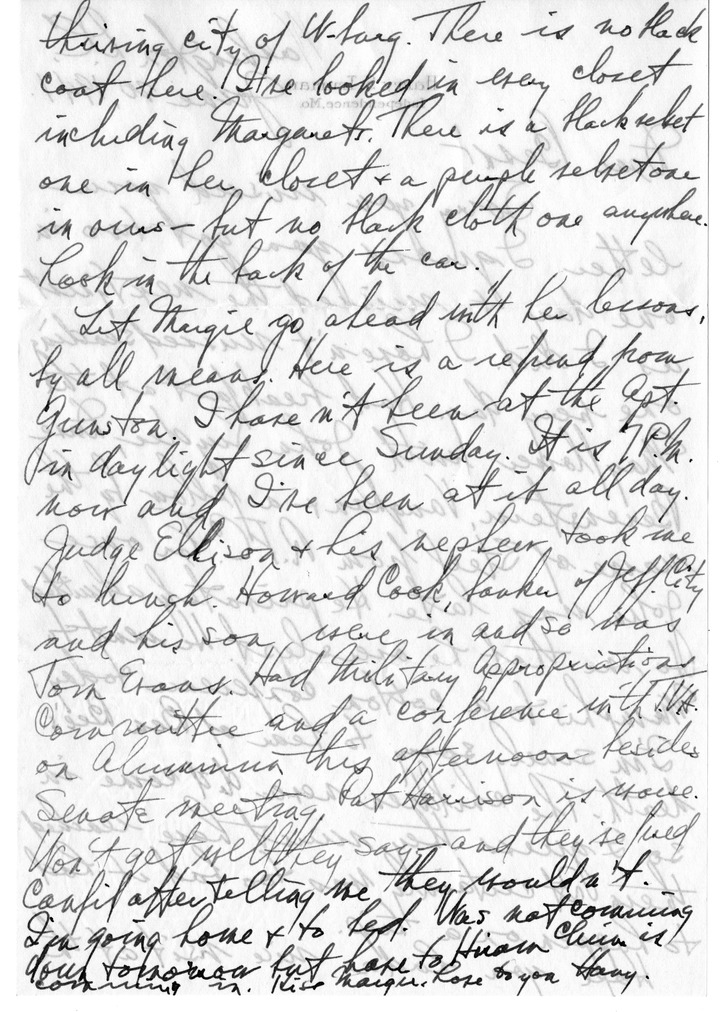 thriving city of W-burg. There is no black
coat here. I've looked in every closet
including Margaret's. There is a black velvet
one in her closet & a purple velvet one
in ours - but no black cloth one anywhere.
Look in the back of the car.
Let Margie go ahead with her lessons,
by all means. Here is a refund from
Gunston. I haven't been at the apt.
in daylight since Sunday. It is 7 P.M.
now and I've been at it all day.
Judge Ellison & his nephew took me
to lunch. Howard Cook, banker of Jeff. City
and his son were in and so was
Tom Evans. Had Military Appropriations
Committee and a conference with T.V.A.
on Aluminum this afternoon besides
Senate meeting. Pat Harrison is worse.
Won't get well they say - and they've fired
Canfil after telling me they wouldn't.
I'm going home & to bed. Was not coming
down tomorrow but have to Hiram is
coming in. Kiss Margie. Love to you Harry.